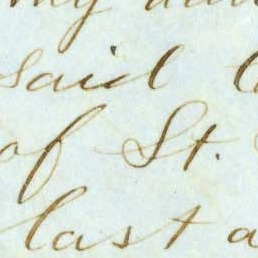 my
said
of St.
last a